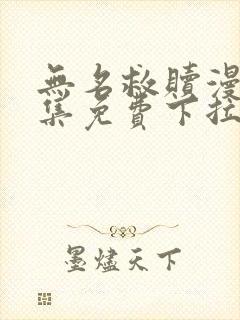 無名救贖漫
集免費下拉
墨燼天下